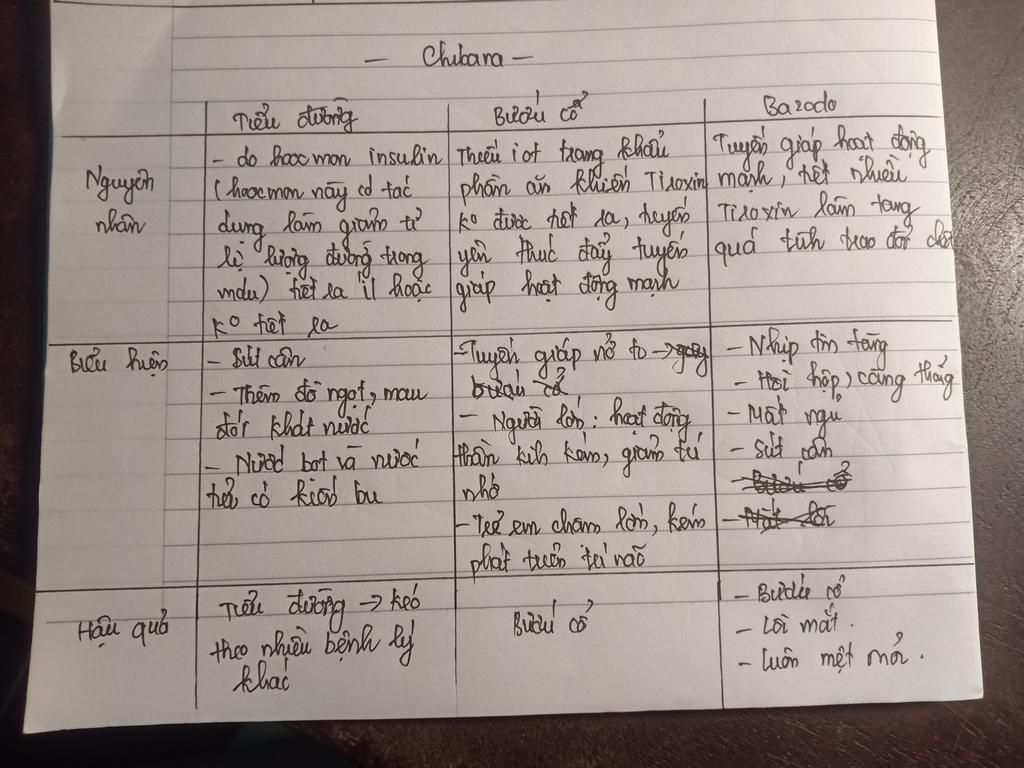 — Chibana —
Tiểu đường
Bướu cổ
Bazơđo
Nguyên
nhân
- do hoocmon insulin
(hoocmon này có tác
dụng làm giảm tỉ
lệ lượng đường trong
máu) tiết ra ít hoặc
k° tiết ra
Thiếu iot trong khẩu
phần ăn khiến Tiroxin
k° được tiết ra, tuyến
yên thúc đẩy tuyến
giáp hoạt động mạnh
Tuyến giáp hoạt động
mạnh, tiết nhiều
Tiroxin làm tăng
quá trình trao đổi chất
Biểu hiện
- Sút cân
- Thèm đồ ngọt, mau
đói khát nước
- Nước bọt và nước
tiểu có kiến bu
- Tuyến giáp nở to → gây
bướu cổ
- Người lớn: hoạt động
thần kih kém, giảm trí
nhớ
- Trẻ em chậm lớn, kém
phát triển trí não
- Nhịp tim tăng
- Hồi hộp, căng thẳng
- Mất ngủ
- Sút cân
Hậu quả
Tiểu đường → kéo
theo nhiều bệnh lý
khác
Bướu cổ
- Bướu cổ
- Lồi mắt.
- luôn mệt mỏi.